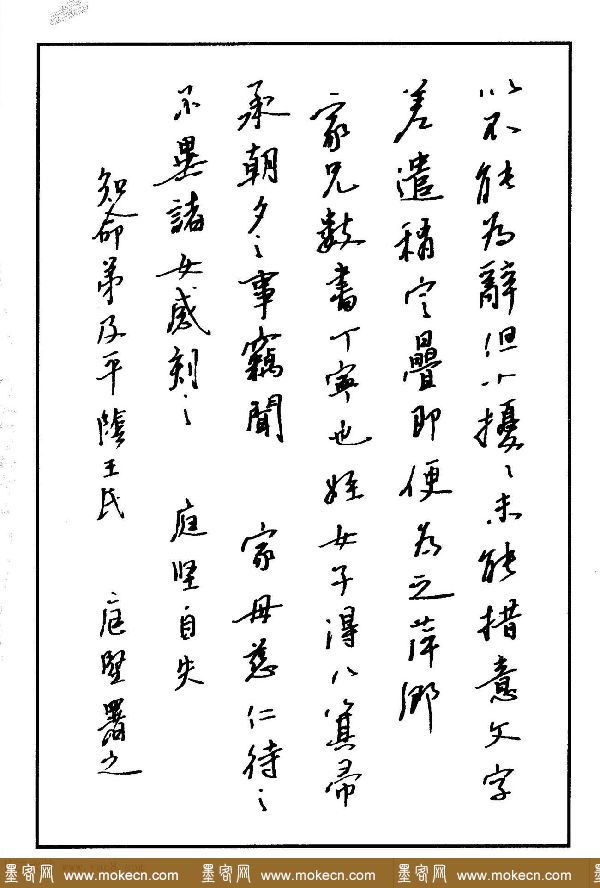 以不能為辭但小擾〻未能措意文字
差遣稍定疊即便為之萍鄉
家兄數書丁寧也姪女子得以箕帚
承朝夕之事竊聞 家母慈仁待之
不異諸女感刻〻 庭堅自失
知命弟及平陰王氏 庭堅署之
墨客网 www.mokecn.com 墨客网 www.mokecn.com 墨客网 www.mokecn.com